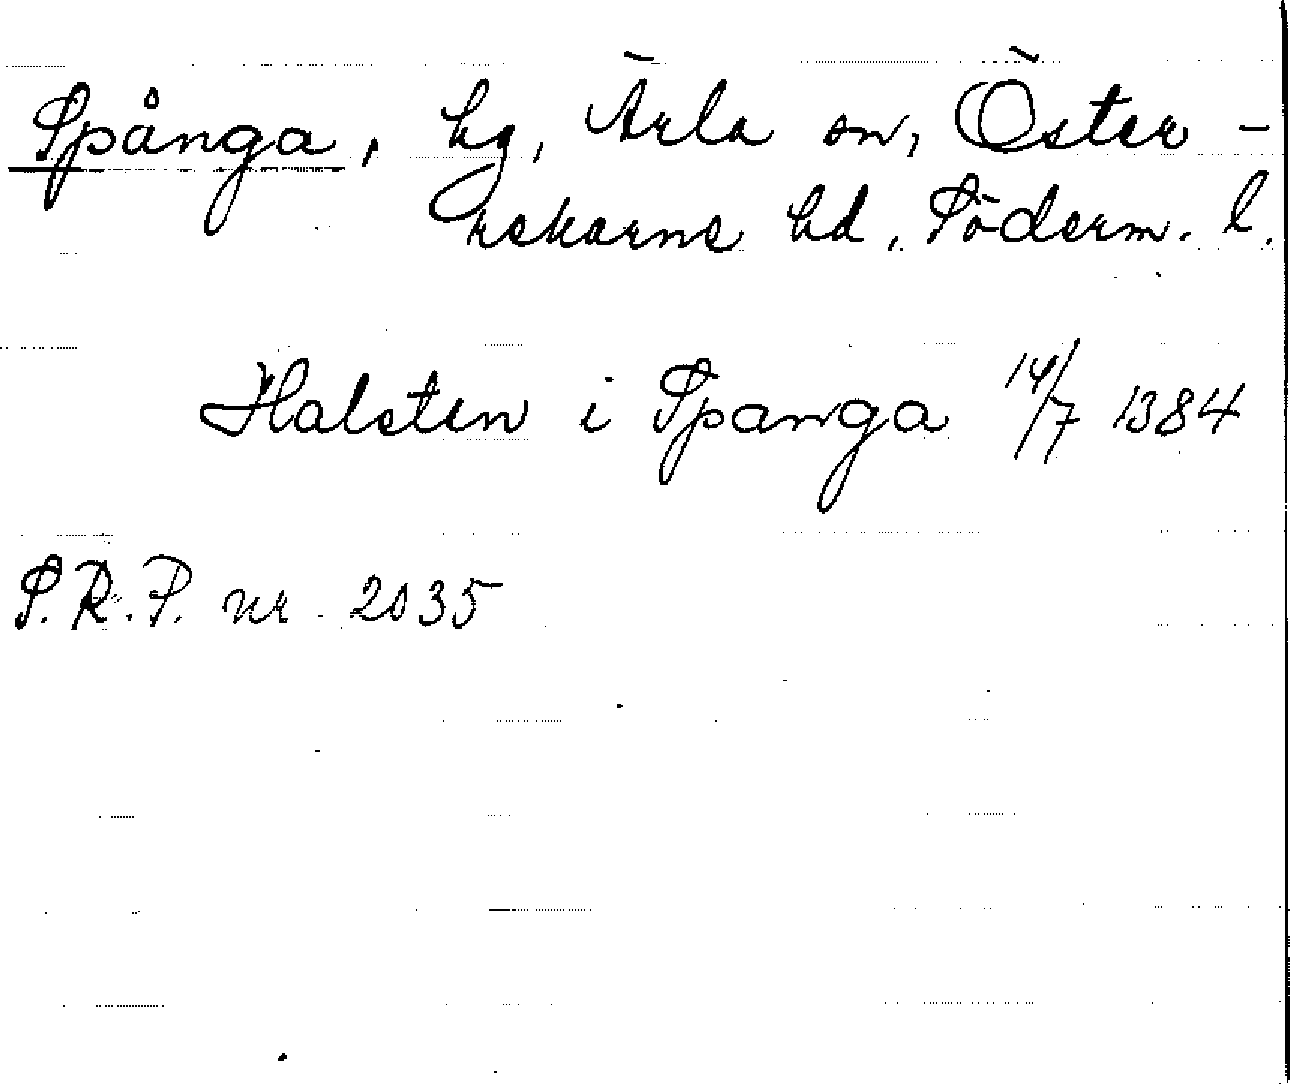 Spånga, hg, Ärla sn, Öster-
rekarne hd, Söderm. l.
Halsten i Spanga 14/7 1384
S.R.P. nr 2035